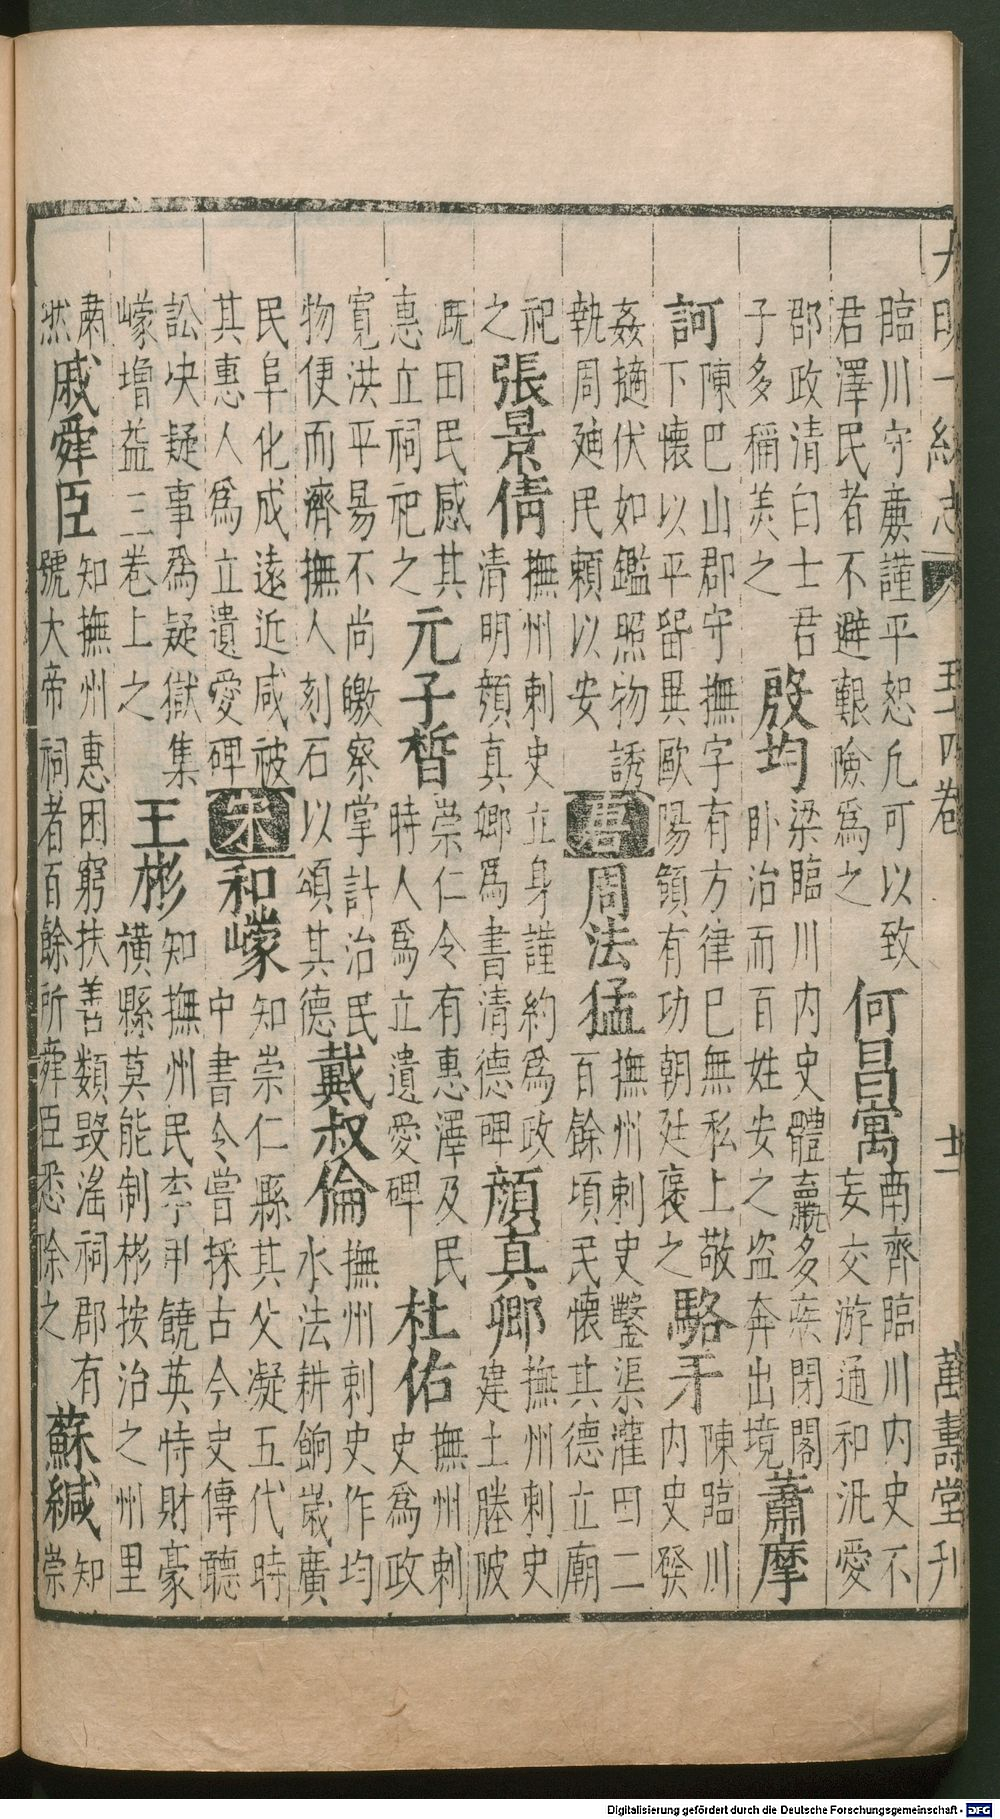 大明一統志 五十四卷 十一 萬壽堂刊
臨川守廉謹平恕凡可以致
君澤民者不避艱險為之
何昌㝢
南齊臨川内史不
妄交游通和汎愛
郡政清白士君
子多稱羨之
殷均
梁臨川内史體羸多疾閉閣
卧治而百姓安之盗奔出境
蕭摩
訶
陳巴山郡守撫字有方律巳無私上敬
下懷以平留異歐陽頠有功朝廷褒之
駱牙
陳臨川
内史發
姦擿伏如鑑照物誘
執周廸民頼以安
唐
周法猛
撫州刺史鑿渠灌田二
百餘頃民懷其德立廟
祀
之
張景倩
撫州刺史立身謹約為政
清明顏真卿為書清德碑
顏真卿
撫州刺史
建土塍陂
既田民感其
惠立祠祀之
元子晳
崇仁令有惠澤及民
時人爲立遺愛碑
杜佑
撫州刺
史為政
寬洪平昜不尚皦察掌計治民
物便而濟撫人刻石以頌其德
戴叔倫
撫州刺史作均
水法耕餉歲廣
民阜化成遠近咸被
其惠人爲立遺愛碑
宋
和㠓
知崇仁縣其父凝五代時
中書令嘗採古今史傳聽
訟决疑事爲疑獄集
㠓增益三卷上之
王彬
知撫州民李甲饒英恃財豪
橫縣莫能制彬按治之州里
肅
然
戚舜臣
知撫州惠困窮扶善類毀滛祠郡有
號大帝祠者百餘所舜臣悉除之
蘇緘
知
崇
Digitalisierung gefördert durch die Deutsche Forschungsgemeinschaft - DFG